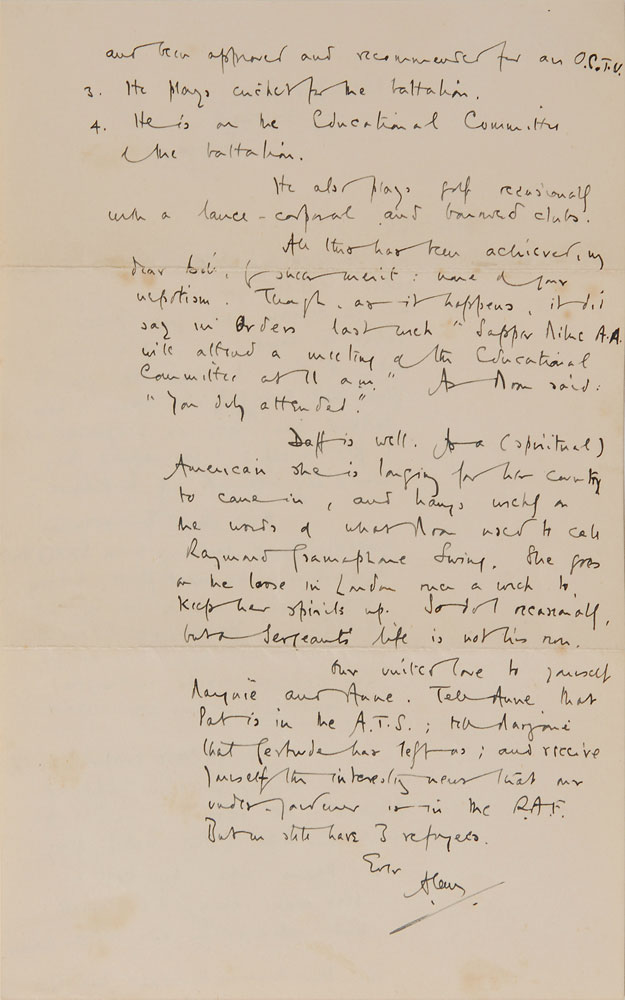 and been approved and recommended for an O.C.T.U.
3. He plays cricket for the battalion.
4. He is on the Educational Committee
of the battalion.
He also plays golf occasionally
with a lance-corporal and borrowed clubs.
All this has been achieved, my
dear by sheer merit: none of your
nepotism. Though, as it happens, it did
say in Orders last week "Sapper Milne A.A.
will attend a meeting of the Educational
Committee at 11 a.m." As Moon said:
"You duly attended."
Daff is well. As a (spiritual)
American she is longing for her country
to come in, and hangs weekly on
the words of what Moon used to call
Raymond Gramaphone Swing. She goes
on the loose in London once a week to
keep her spirits up. So do I occasionally,
but a Sergeant's life is not his own.
Our united love to yourself
and Anne. Tell Anne that
Pat is in the A.T.S.; tell
that Gertrude has left us; and receive
yourself the interesting news that our
under-gardener is in the R.A.F.
But we still have 3 refugees.
Ever
Alan.